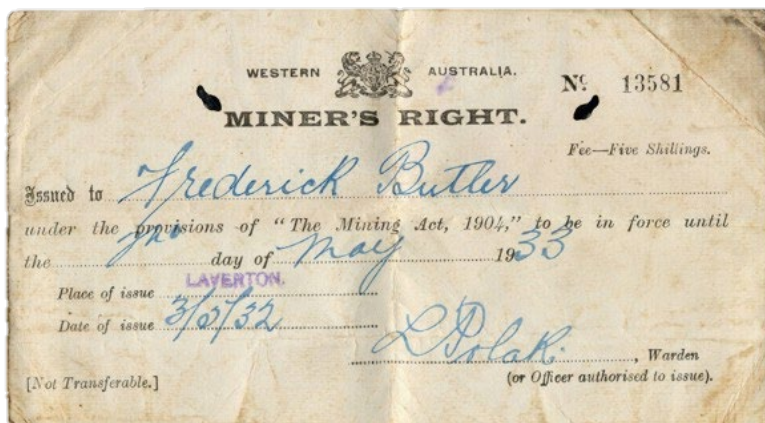 WESTERN AUSTRALIA.
No. 13581
MINER'S RIGHT.
Fee—Five Shillings.
Issued to Frederick Butler
under the provisions of "The Mining Act, 1904," to be in force until
the day of May 1933
Place of issue LAVERTON.
Date of issue 3/5/32
L Polak. , Warden
[Not Transferable.] (or Officer authorised to issue).